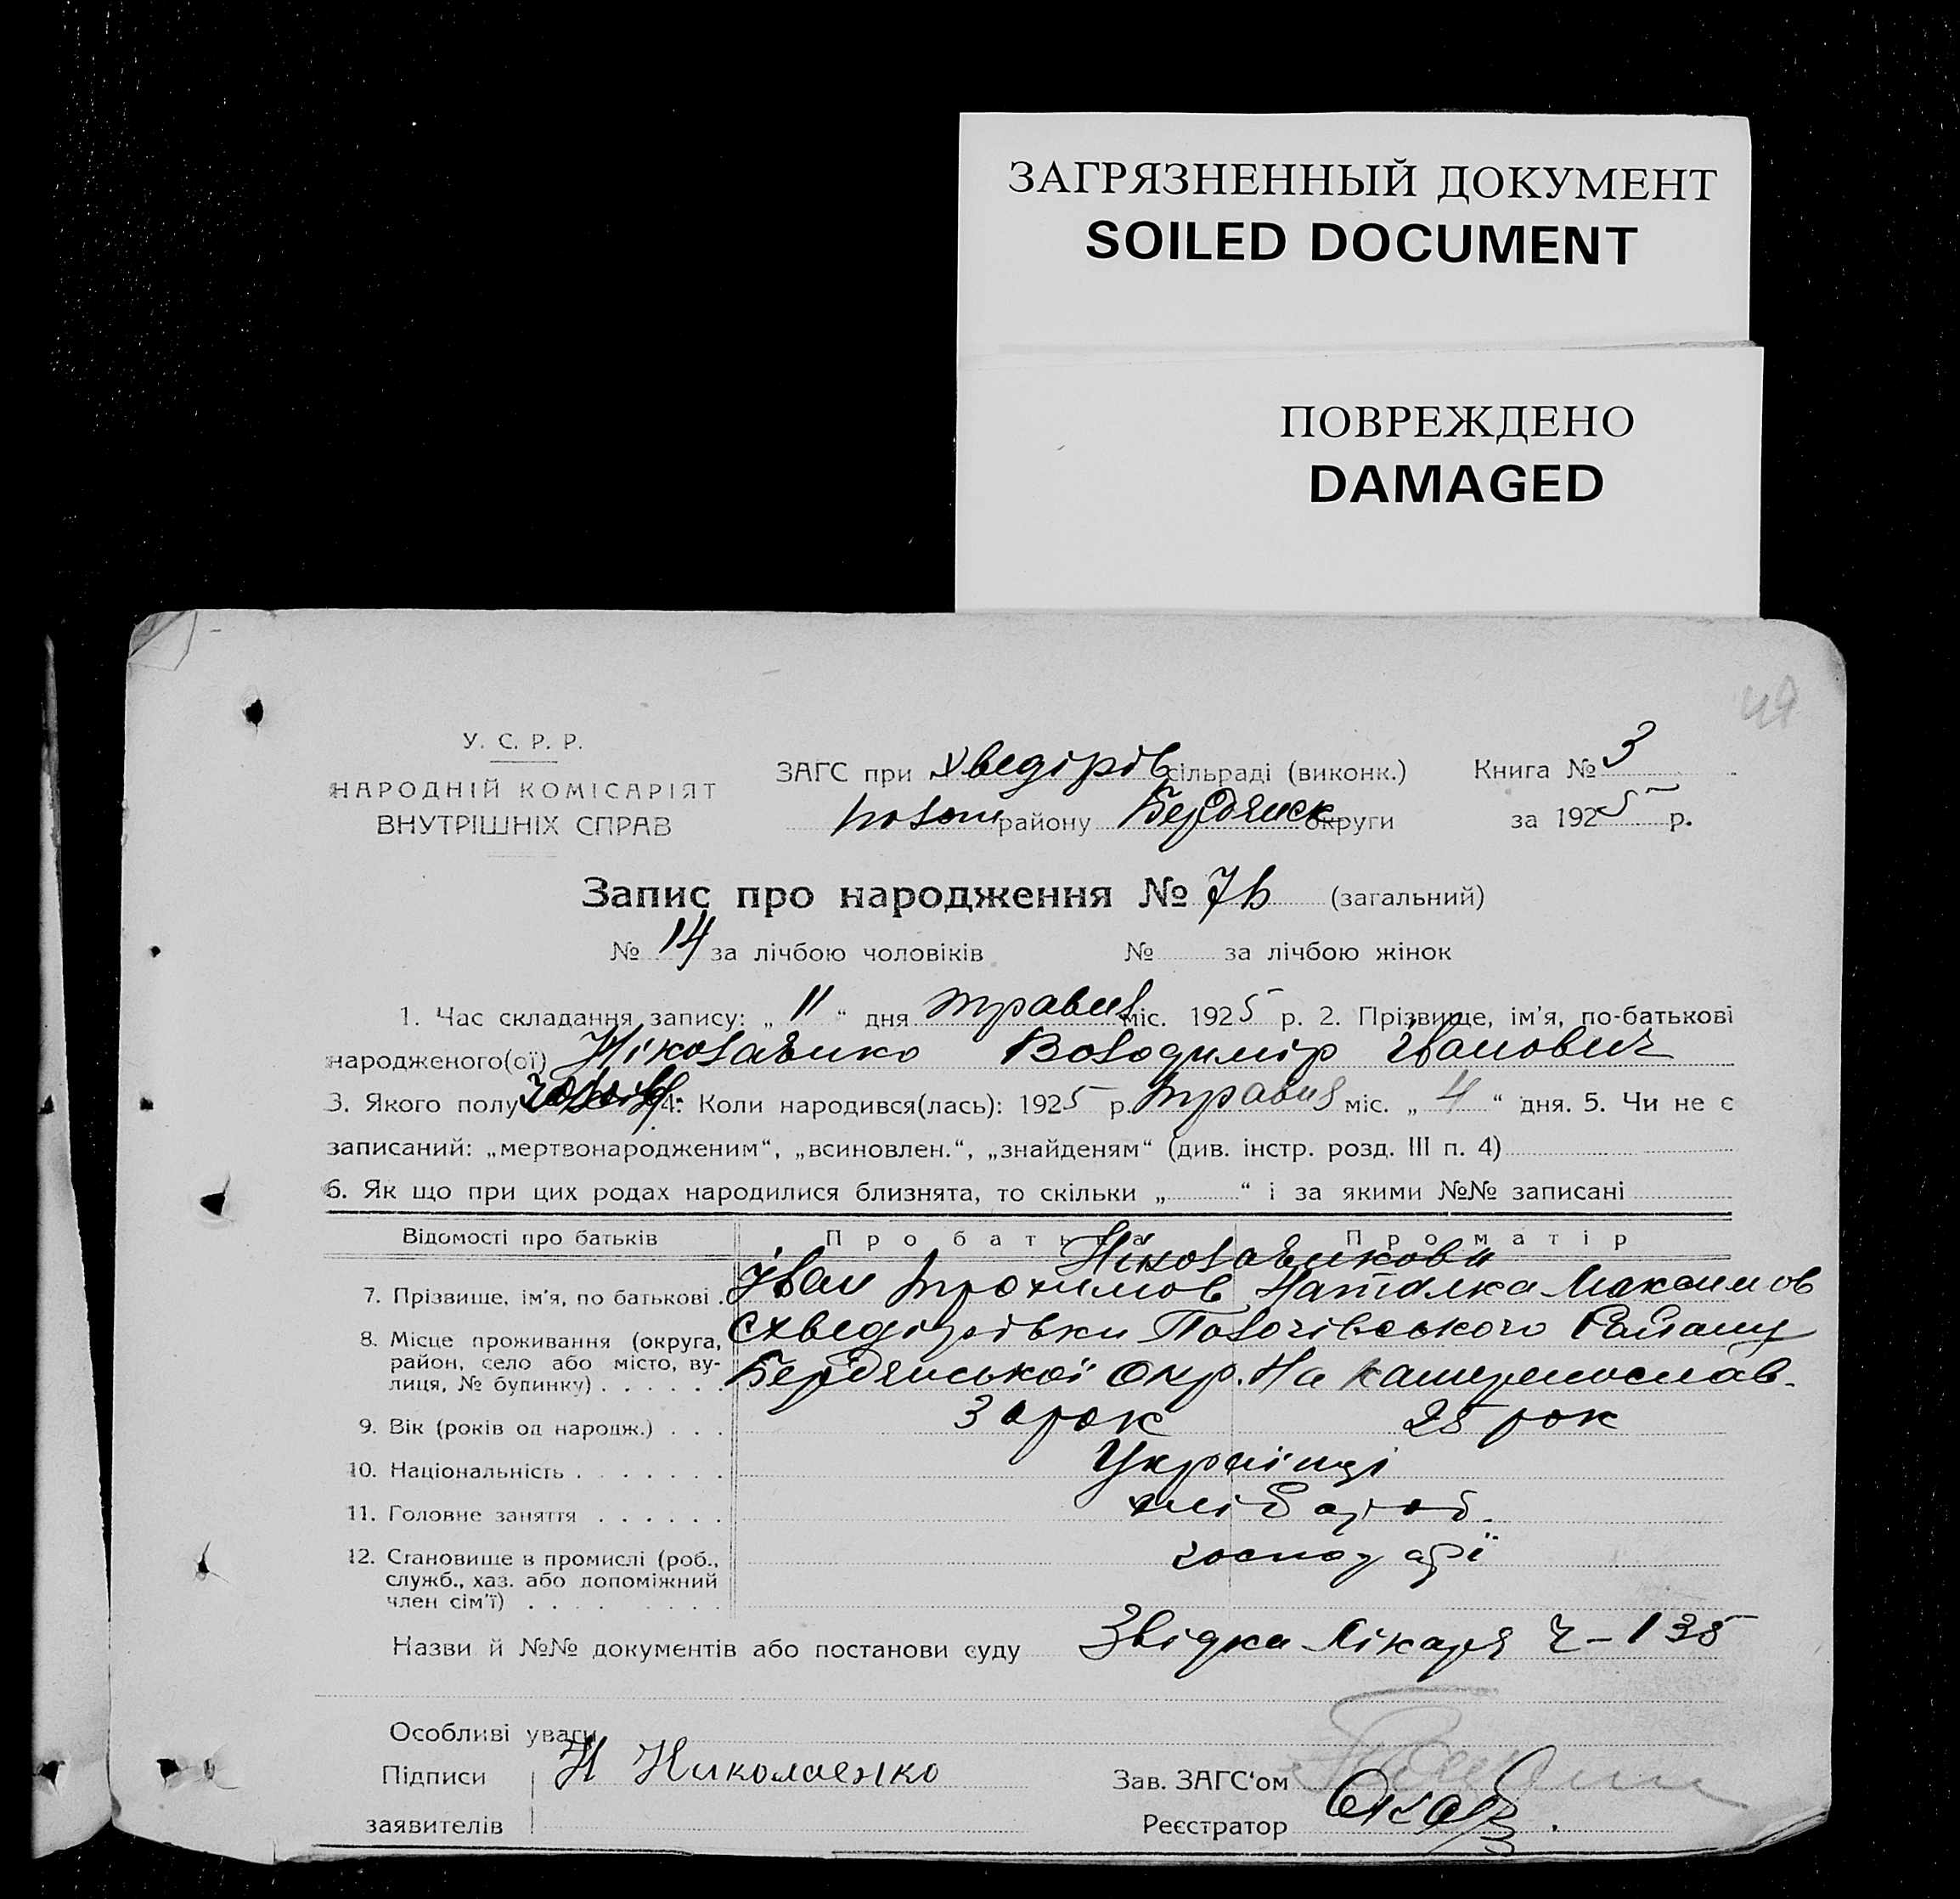 ЗАГРЯЗНЕННЫЙ ДОКУМЕНТ
SOILED DOCUMENT
ПОВРЕЖДЕНО
DAMAGED
У. С. Р. Р.
НАРОДНІЙ КОМІСАРІЯТ
ВНУТРІШНІХ СПРАВ
ЗАГС при Хведірів сільраді (виконк.)
району Бердянск округи
Книга № 3
за 1925 р.
Запис про народження № (загальний)
№ 14 за лічбою чоловіків № за лічбою жінок
1. Час складання запису: „ 11 “ дня травня міс. 1925 р. 2. Прізвище, ім'я, по-батькові
народженого(ої) Ніколаєнко Володимір Іванович
3. Якого полу 4. Коли народився(лась): 1925 р. травня міс. „ 4 “ дня. 5. Чи не є
записаний: „мертвонародженим“, „всиновлен.“, „знайденям“ (див. інстр. розд. III п. 4)
6. Як що при цих родах народилися близнята, то скільки „ “ і за якими №№ записані
Відомості про батьків Про батька Про матір
Ніколаєнкови
7. Прізвище, ім'я, по батькові . Іван Трохимов Наталка Максимов
8. Місце проживання (округа, район, село або місто, вулиця, № будинку) . . . . . .
с Хведірівки Пологівского Району
Бердянської Окр. на Катеренослав.
9. Вік (років од народж.) . . . 30 рок 28 рок
10. Національність . . . . . . . Українці
11. Головне заняття . . . . . . хлібороб.
12. Становище в промислі (роб., служб., хаз. або допоміжний член сім'ї) . . . . . . . .
господарі
Назви й №№ документів або постанови суду Звідка Лікаря Ч-135
Особливі уваги
Підписи Н Николаенко
заявителів
Зав. ЗАГС'ом
Реєстратор